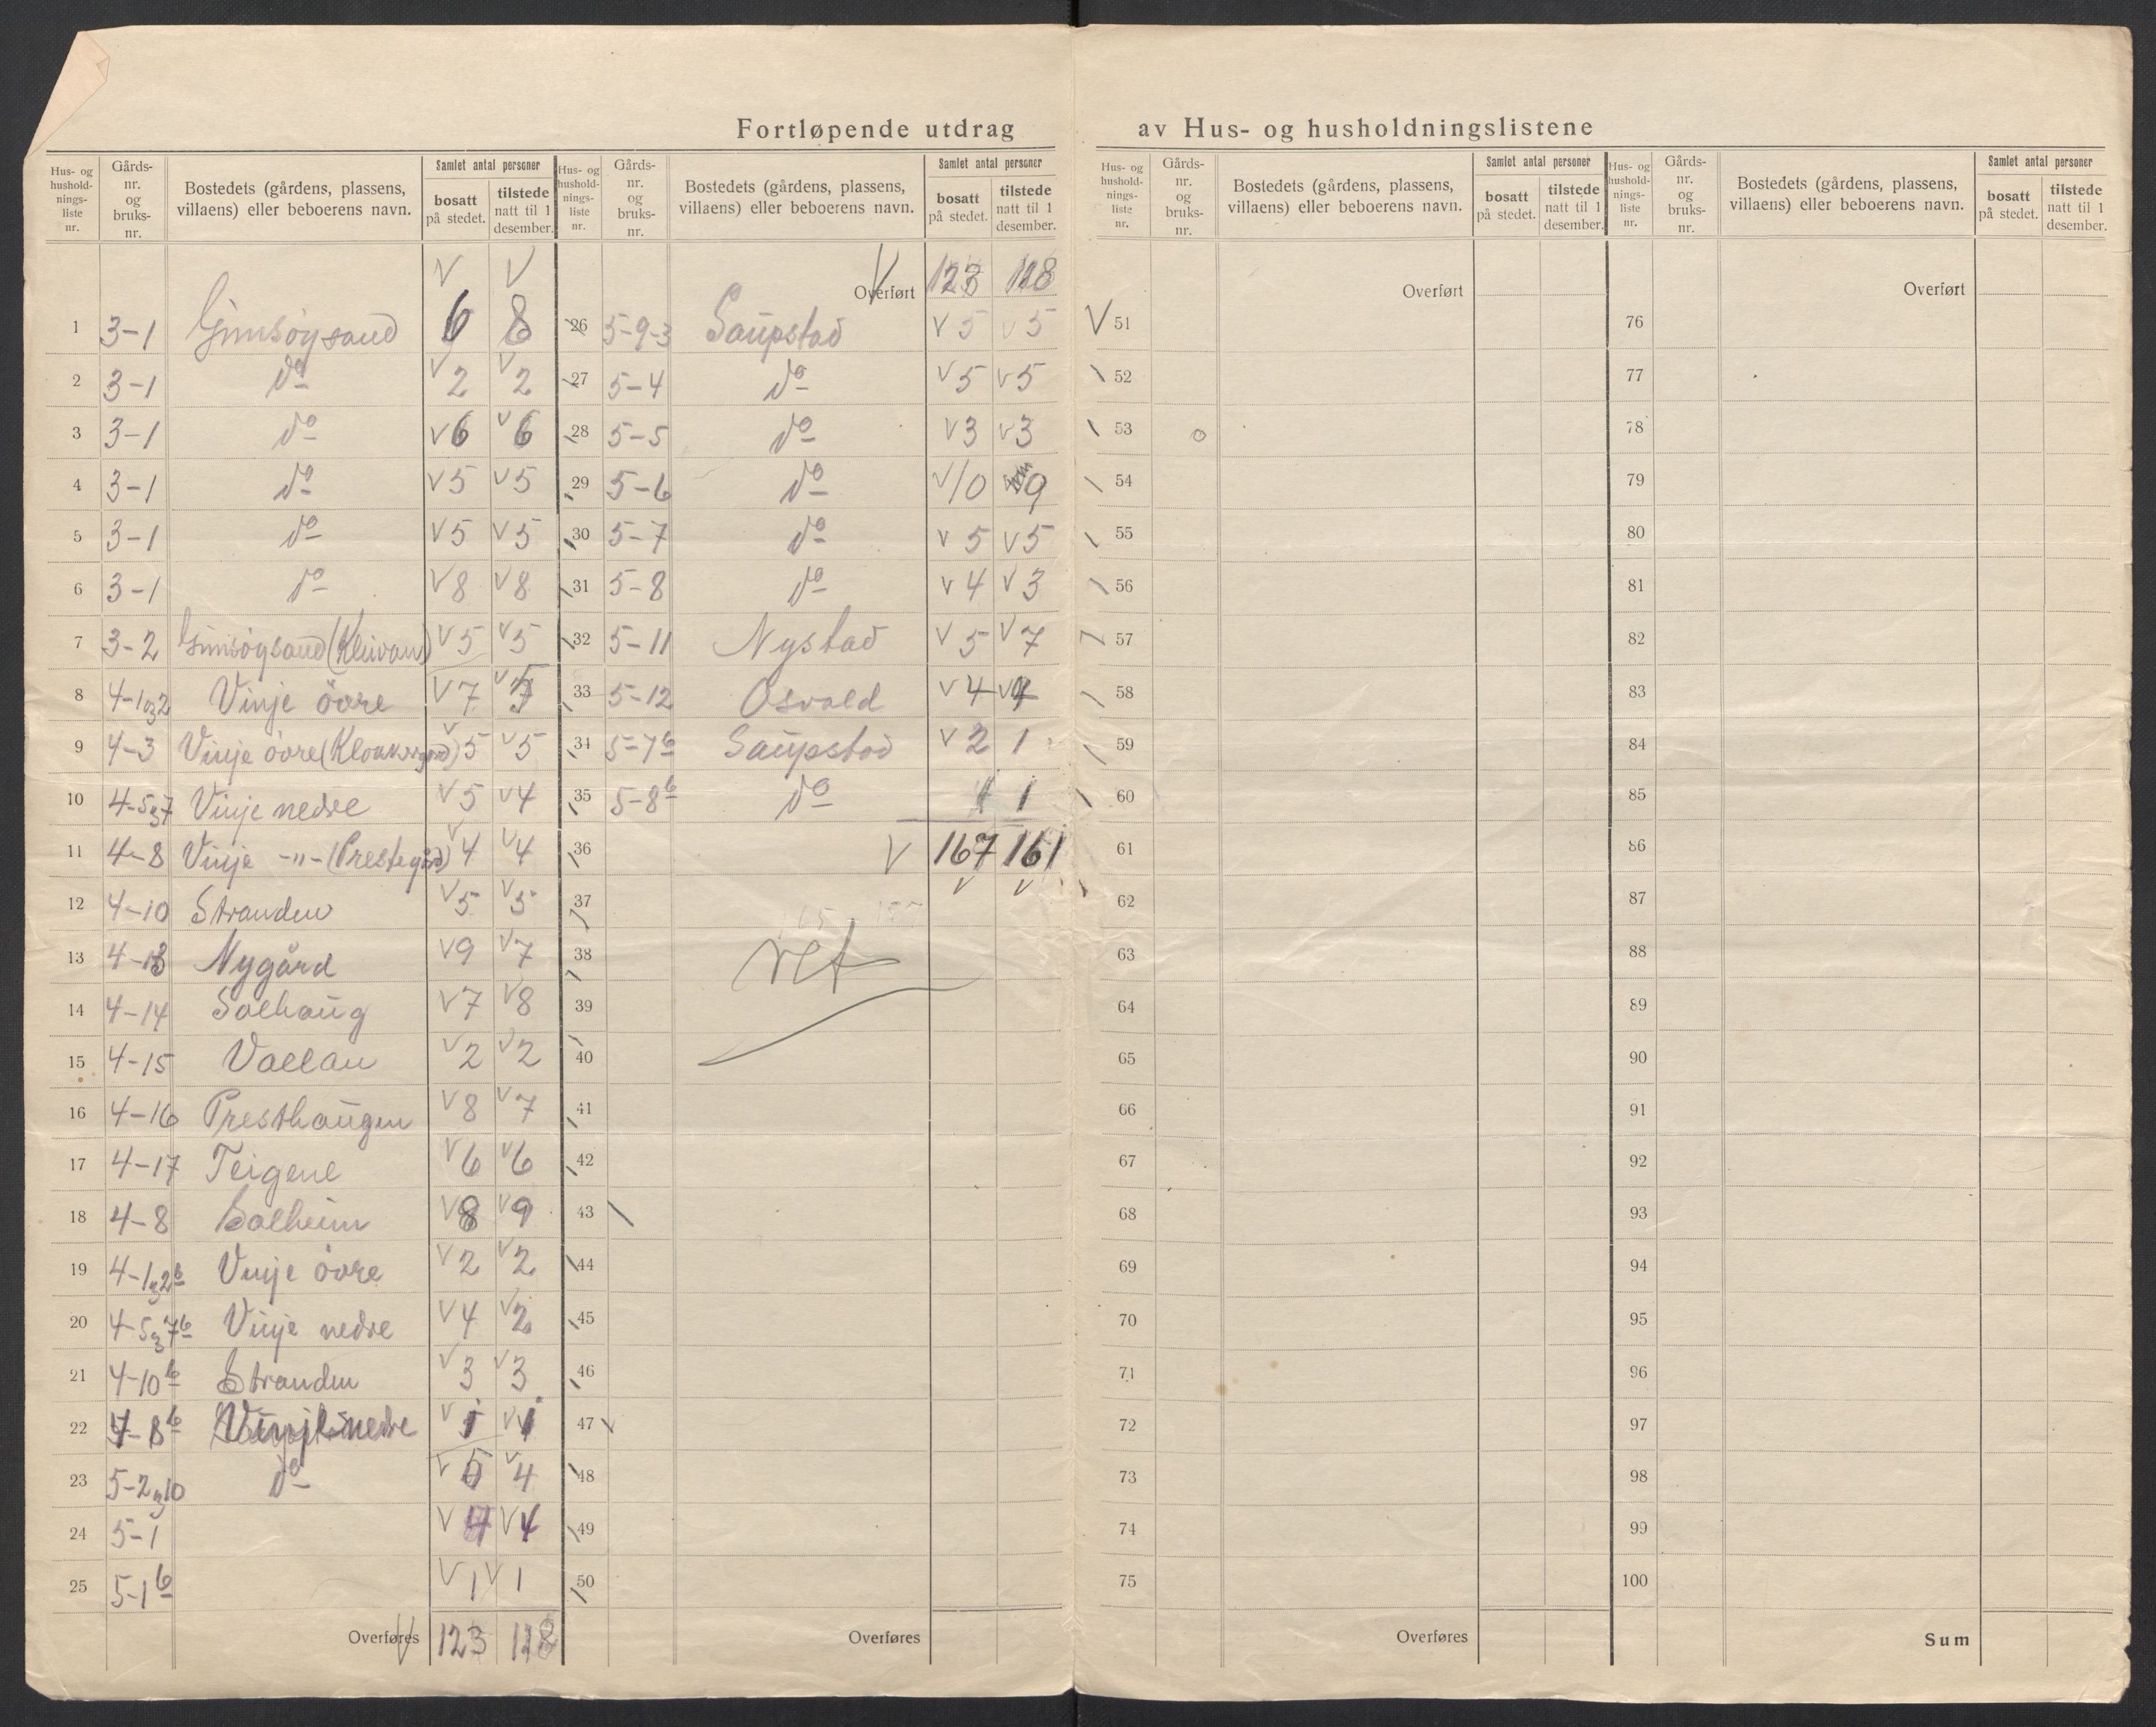 Fortløpende utdrag av Hus- og husholdningslistene
Hus- og husholdnings-liste nr. | Gårds-nr. og bruks-nr. | Bostedets (gårdens, plassens, villaens) eller beboerens navn. | Samlet antal personer | bosatt på stedet. | tilstede natt til 1 desember.
1 3-1 Gimsøysand 6 8
2 3-1 do 2 2
3 3-1 do 6 6
4 3-1 do 5 5
5 3-1 do 5 5
6 3-1 do 8 8
7 3-2 Gimsøysand (Kleivan) 5 5
8 4-1og2 Vinje övre 7
9 4-3 Vinje övre (Klokkergård) 5 5
10 4-5og7 Vinje nedre 5 4
11 4-8 Vinje -"- (Prestegård) 4 4
12 4-10 Stranden 5 5
13 4-13 Nygård 9 7
14 4-14 Solhaug 7 8
15 4-15 Vollan 2 2
16 4-16 Presthaugen 8 7
17 4-17 Teigene 6 6
18 4-8 Solheim 8 9
19 4-1og2b Vinje övre 2 2
20 4-5og7b Vinje nedre 4 2
21 4-10b Stranden 3 3
22 4-8b Vinje nedre 1 1
23 5-2og10 do 5 4
24 5-1 4 4
25 5-1b 1 1
Overføres 123 118
Hus- og husholdnings-liste nr. | Gårds-nr. og bruks-nr. | Bostedets (gårdens, plassens, villaens) eller beboerens navn. | Samlet antal personer | bosatt på stedet. | tilstede natt til 1 desember.
Overført 123 118
26 5-9-3 Saupstad 5 5
27 5-4 do 5 5
28 5-5 do 3 3
29 5-6 do 10 9
30 5-7 do 5 5
31 5-8 do 4 3
32 5-11 Nystad 5 7
33 5-12 Osvold 4 4
34 5-7b Saupstad 2 1
35 5-8b do 1 1
36 167 161
37
38 ret
39
40
41
42
43
44
45
46
47
48
49
50
Overføres
Hus- og husholdnings-liste nr. | Gårds-nr. og bruks-nr. | Bostedets (gårdens, plassens, villaens) eller beboerens navn. | Samlet antal personer | bosatt på stedet. | tilstede natt til 1 desember.
Overført
51
52
53
54
55
56
57
58
59
60
61
62
63
64
65
66
67
68
69
70
71
72
73
74
75
Overføres
Hus- og husholdnings-liste nr. | Gårds-nr. og bruks-nr. | Bostedets (gårdens, plassens, villaens) eller beboerens navn. | Samlet antal personer | bosatt på stedet. | tilstede natt til 1 desember.
Overført
76
77
78
79
80
81
82
83
84
85
86
87
88
89
90
91
92
93
94
95
96
97
98
99
100
Sum